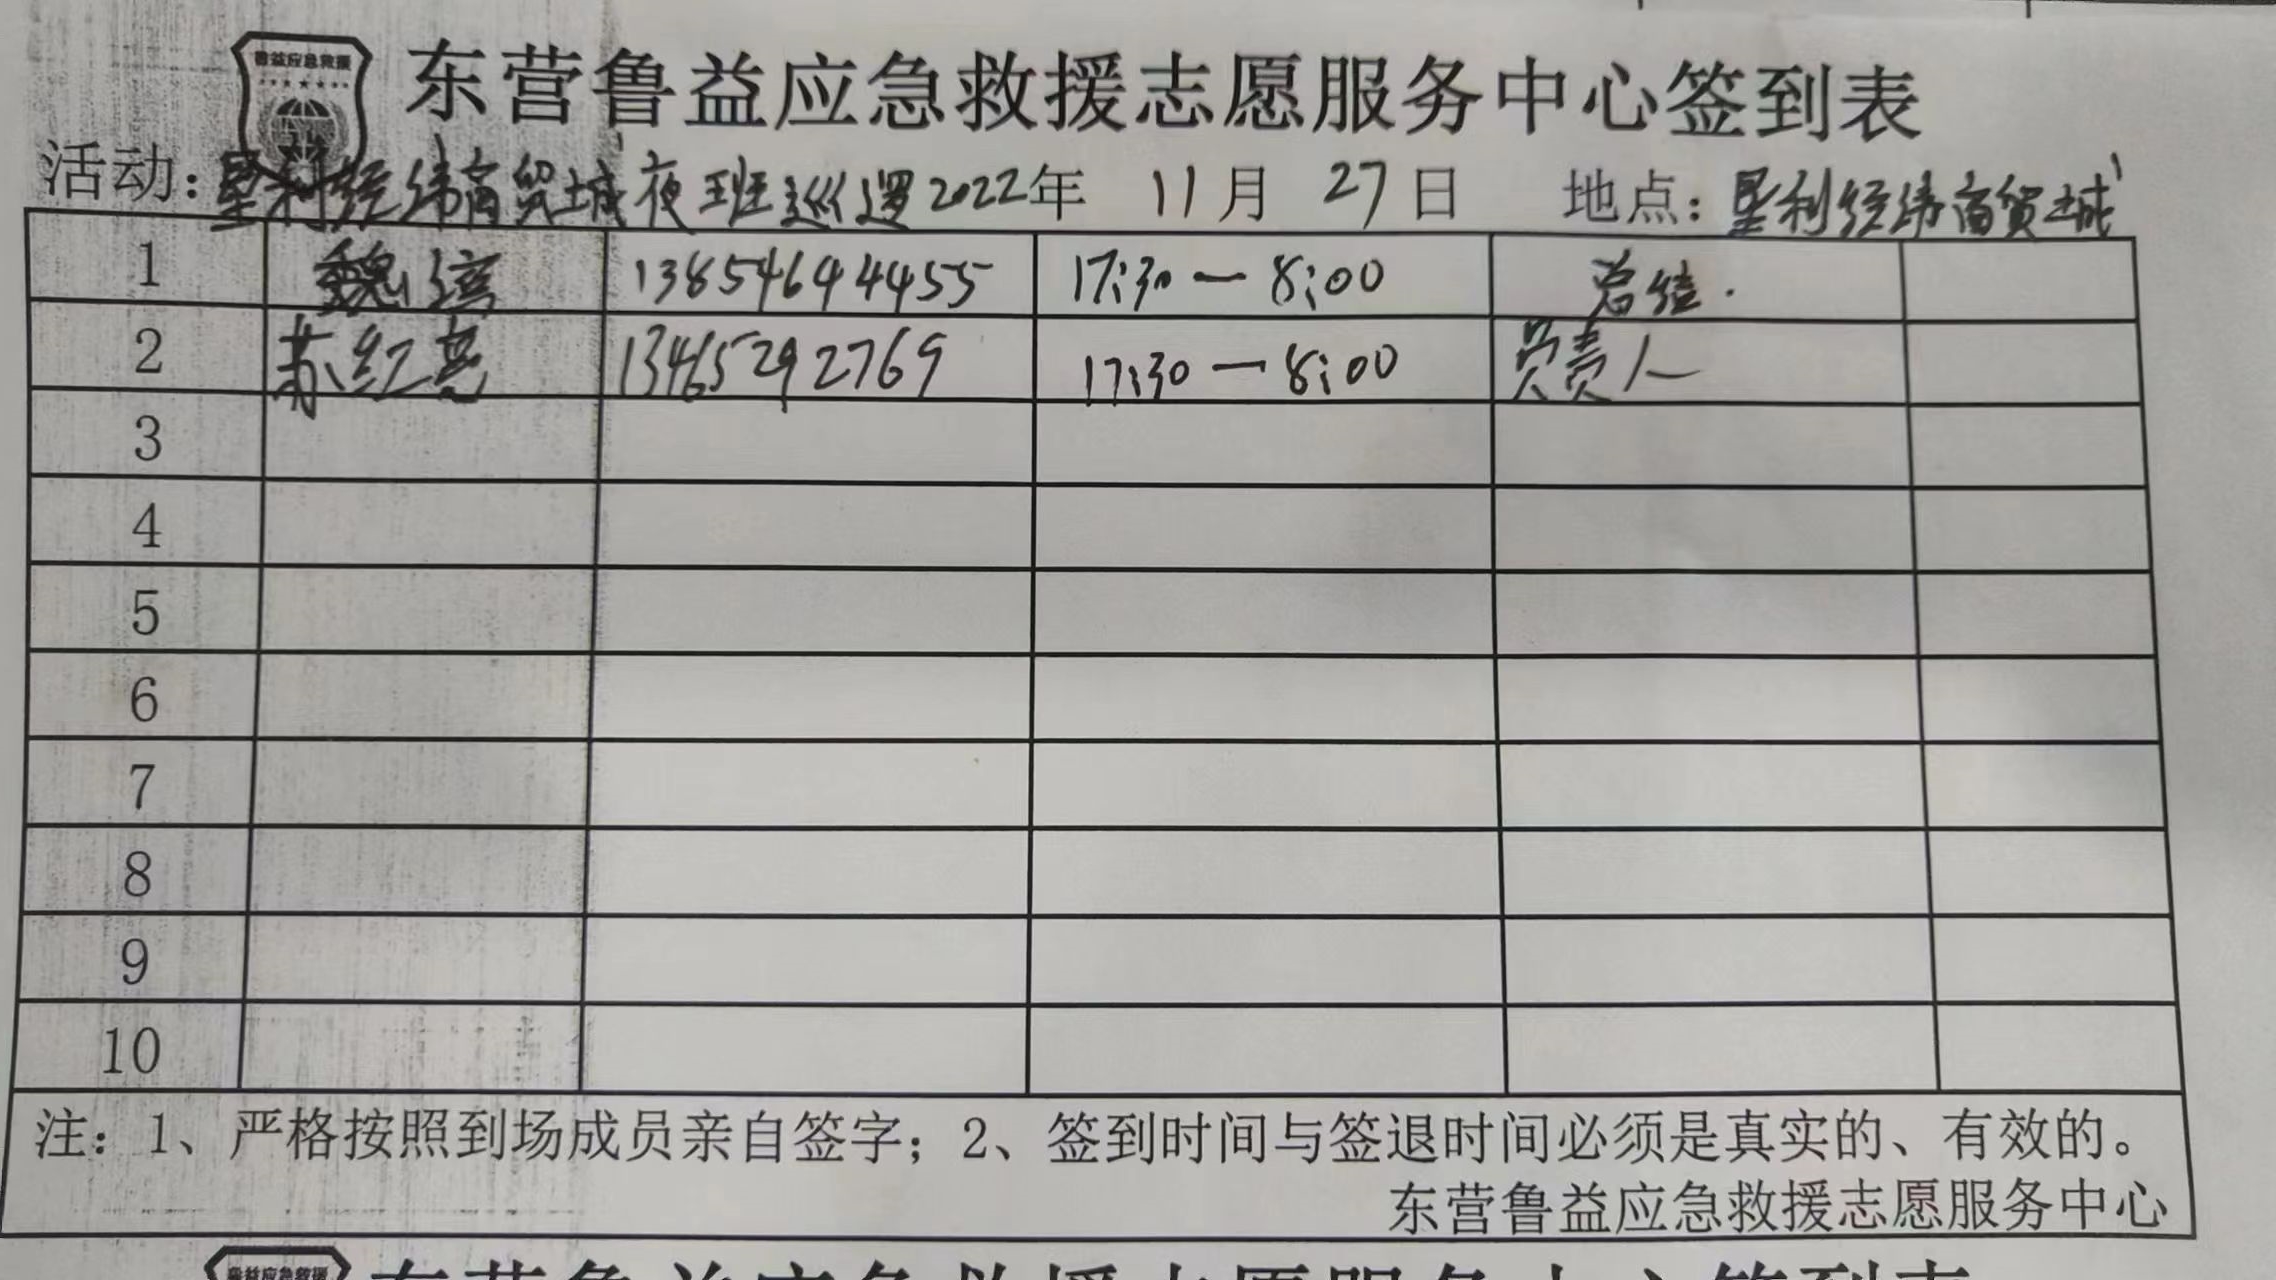 鲁益应急救援
东营鲁益应急救援志愿服务中心签到表
活动：垦利经纬商贸城夜班巡逻2022年 11月 27日 地点：垦利经纬商贸城
1 魏 13854644455 17:30—8:00 总结.
2 苏红亮 13465292769 17:30—8:00 负责人
3
4
5
6
7
8
9
10
注：1、严格按照到场成员亲自签字；2、签到时间与签退时间必须是真实的、有效的。
东营鲁益应急救援志愿服务中心
鲁益应急救援
东营鲁益应急救援志愿服务中心签到表